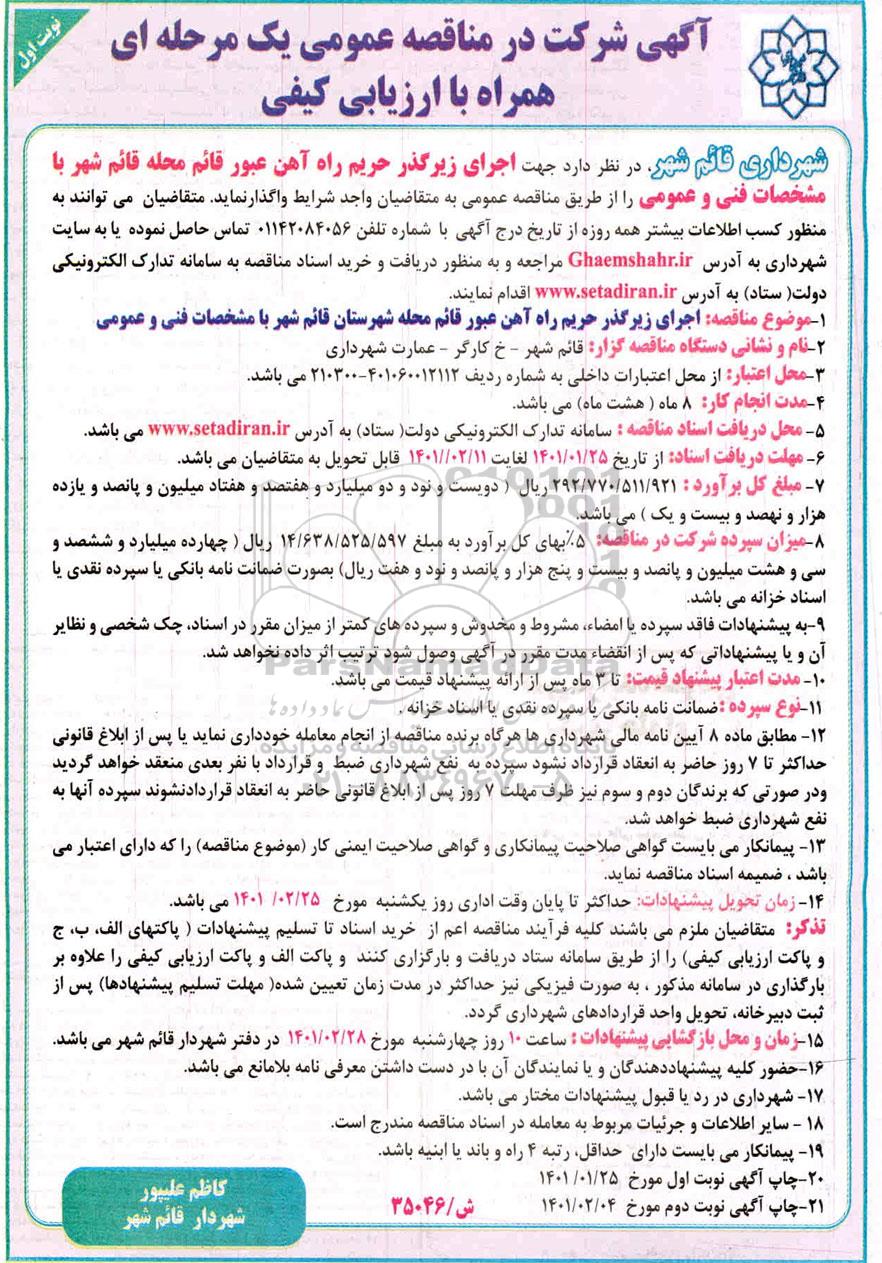 نوبت اول
آگهی شرکت در مناقصه عمومی یک مرحله ای
همراه با ارزیابی کیفی
شهرداری قائم شهر، در نظر دارد جهت اجرای زیرگذر حریم راه آهن عبور قائم محله قائم شهر با
مشخصات فنی و عمومی را از طریق مناقصه عمومی به متقاضیان واجد شرایط واگذارنماید. متقاضیان می توانند به
منظور کسب اطلاعات بیشتر همه روزه از تاریخ درج آگهی با شماره تلفن ۰۱۱۴۲۰۸۴۰۵۶ تماس حاصل نموده یا به سایت
شهرداری به آدرس Ghaemshahr.ir مراجعه و به منظور دریافت و خرید اسناد مناقصه به سامانه تدارک الکترونیکی
دولت( ستاد) به آدرس www.setadiran.ir اقدام نمایند.
۱-موضوع مناقصه: اجرای زیرگذر حریم راه آهن عبور قائم محله شهرستان قائم شهر با مشخصات فنی و عمومی
۲-نام و نشانی دستگاه مناقصه گزار: قائم شهر - خ کارگر - عمارت شهرداری
۳-محل اعتبار: از محل اعتبارات داخلی به شماره ردیف ۴۰۱۰۶۰۰۱۲۱۱۲-۲۱۰۳۰۰ می باشد.
۴-مدت انجام کار: ۸ ماه ( هشت ماه) می باشد.
۵- محل دریافت اسناد مناقصه : سامانه تدارک الکترونیکی دولت( ستاد) به آدرس www.setadiran.ir می باشد.
۶- مهلت دریافت اسناد: از تاریخ ۱۴۰۱/۰۱/۲۵ لغایت ۱۴۰۱//۰۲/۱۱ قابل تحویل به متقاضیان می باشد.
۷- مبلغ کل برآورد : ۲۹۲/۷۷۰/۵۱۱/۹۲۱ ریال ( دویست و نود و دو میلیارد و هفتصد و هفتاد میلیون و پانصد و یازده
هزار و نهصد و بیست و یک ) می باشد.
۸-میزان سپرده شرکت در مناقصه: ۵٪بهای کل برآورد به مبلغ ۱۴/۶۳۸/۵۲۵/۵۹۷ ریال ( چهارده میلیارد و ششصد و
سی و هشت میلیون و پانصد و بیست و پنج هزار و پانصد و نود و هفت ریال) بصورت ضمانت نامه بانکی یا سپرده نقدی یا
اسناد خزانه می باشد.
۹-به پیشنهادات فاقد سپرده یا امضاء، مشروط و مخدوش و سپرده های کمتر از میزان مقرر در اسناد، چک شخصی و نظایر
آن و یا پیشنهاداتی که پس از انقضاء مدت مقرر در آگهی وصول شود ترتیب اثر داده نخواهد شد.
ParsNamadData
۱۰- مدت اعتبار پیشنهاد قیمت: تا ۳ ماه پس از ارائه پیشنهاد قیمت می باشد.
۱۱-نوع سپرده : ضمانت نامه بانکی یا سپرده نقدی یا اسناد خزانه .
۱۲- مطابق ماده ۸ آیین نامه مالی شهرداری ها هرگاه برنده مناقصه از انجام معامله خودداری نماید یا پس از ابلاغ قانونی
پایگاه اطلاع رسانی مناقصه و مزایده
حداکثر تا ۷ روز حاضر به انعقاد قرارداد نشود سپرده به نفع شهرداری ضبط و قرارداد با نفر بعدی منعقد خواهد گردید
۰۲۱-۸۸۳۴۹۶۷۰-۵
ودر صورتی که برندگان دوم و سوم نیز ظرف مهلت ۷ روز پس از ابلاغ قانونی حاضر به انعقاد قراردادنشوند سپرده آنها به
نفع شهرداری ضبط خواهد شد.
۱۳- پیمانکار می بایست گواهی صلاحیت پیمانکاری و گواهی صلاحیت ایمنی کار (موضوع مناقصه) را که دارای اعتبار می
باشد ، ضمیمه اسناد مناقصه نماید.
۱۴- زمان تحویل پیشنهادات: حداکثر تا پایان وقت اداری روز یکشنبه مورخ ۱۴۰۱ /۰۲/۲۵ می باشد.
تذکر: متقاضیان ملزم می باشند کلیه فرآیند مناقصه اعم از خرید اسناد تا تسلیم پیشنهادات ( پاکتهای الف، ب، ج
و پاکت ارزیابی کیفی) را از طریق سامانه ستاد دریافت و بارگزاری کنند و پاکت الف و پاکت ارزیابی کیفی را علاوه بر
بارگذاری در سامانه مذکور ، به صورت فیزیکی نیز حداکثر در مدت زمان تعیین شده( مهلت تسلیم پیشنهادها) پس از
ثبت دبیرخانه، تحویل واحد قراردادهای شهرداری گردد.
۱۵-زمان و محل بازگشایی پیشنهادات : ساعت ۱۰ روز چهارشنبه مورخ ۱۴۰۱/۰۲/۲۸ در دفتر شهردار قائم شهر می باشد.
۱۶-حضور کلیه پیشنهاددهندگان و یا نمایندگان آن با در دست داشتن معرفی نامه بلامانع می باشد.
۱۷- شهرداری در رد یا قبول پیشنهادات مختار می باشد.
۱۸ - سایر اطلاعات و جزئیات مربوط به معامله در اسناد مناقصه مندرج است.
۱۹- پیمانکار می بایست دارای حداقل، رتبه ۴ راه و باند یا ابنیه باشد.
۲۰-چاپ آگهی نوبت اول مورخ ۱۴۰۱/۰۱/۲۵
۲۱-چاپ آگهی نوبت دوم مورخ ۱۴۰۱/۰۲/۰۴
ش/۳۵۰۴۶
کاظم علیپور
شهردار قائم شهر